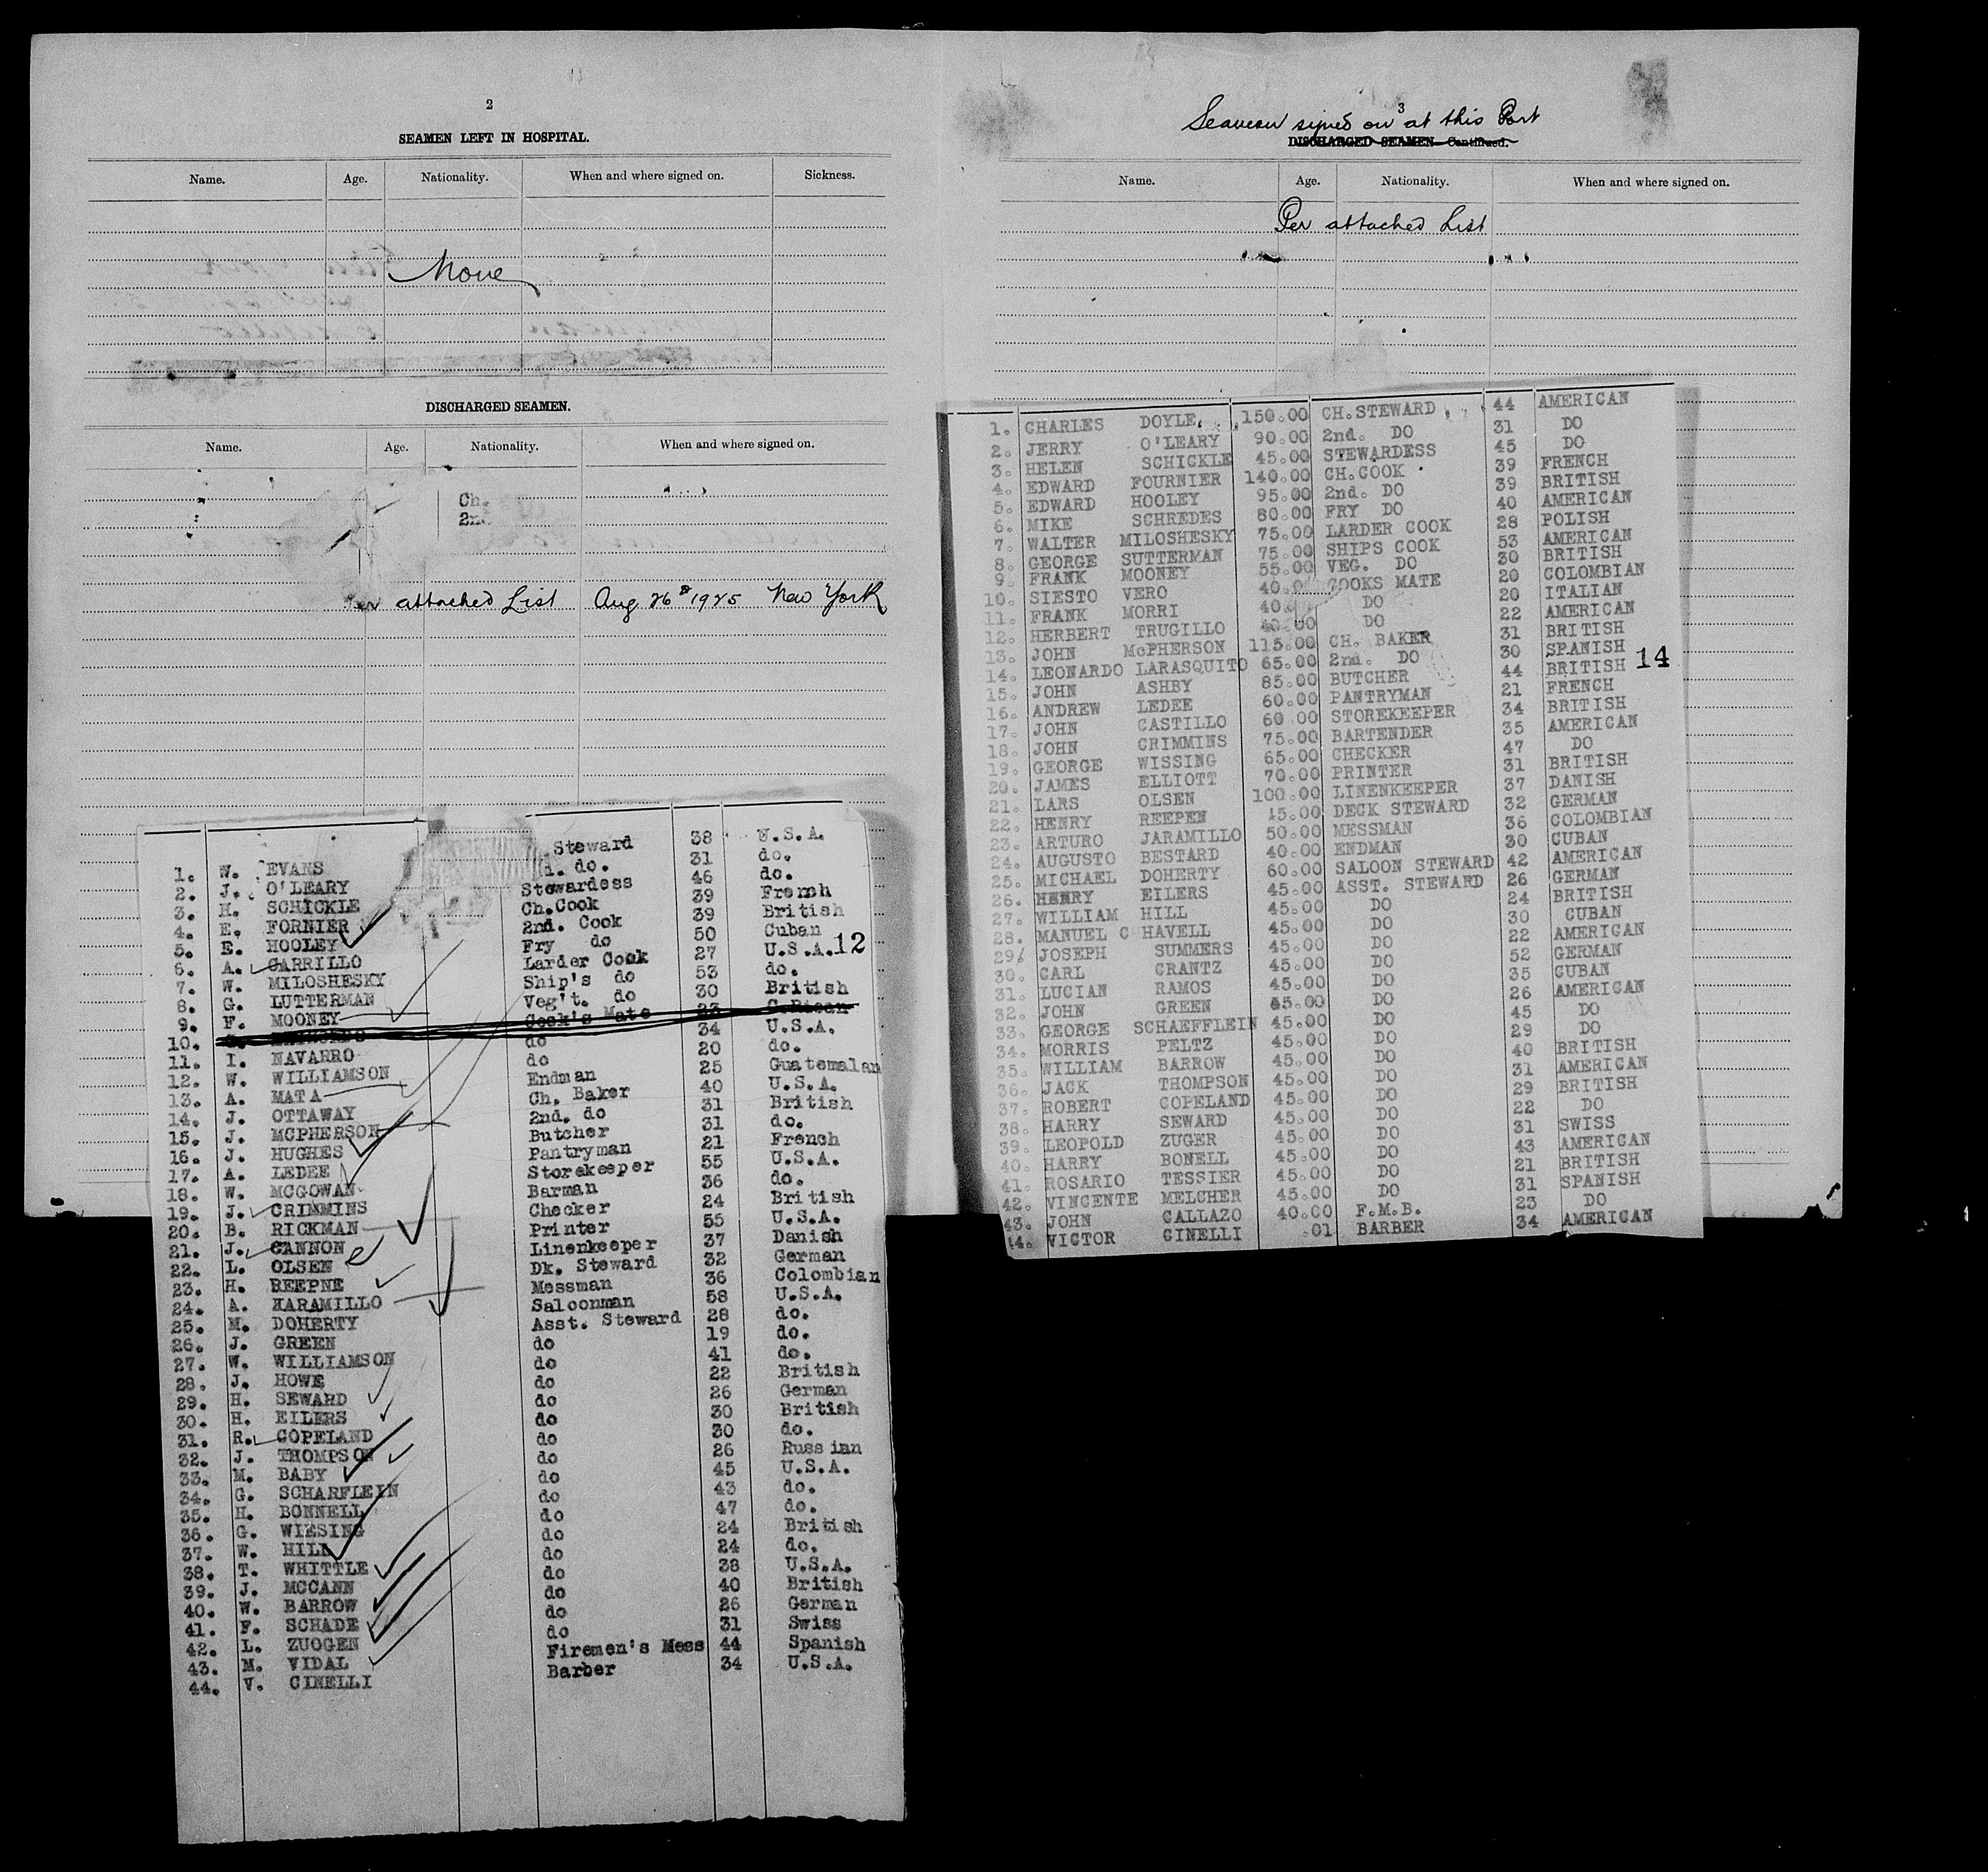 2
SEAMEN LEFT IN HOSPITAL.
Name. Age. Nationality. When and where signed on. Sickness.
None
DISCHARGED SEAMEN.
Name. Age. Nationality. When and where signed on.
Ch.
2nd
Per attached List Aug 26 1925 New York
1. W. EVANS Steward 38 U.S.A.
2. J. O'LEARY d. do. 31 do.
3. H. SCHICKLE Stewardess 46 do.
4. E. FORNIER Ch.Cook 39 French
5. E. HOOLEY 2nd. Cook 39 British
6. A. CARRILLO Fry do 50 Cuban
7. W. MILOSHESKY Larder Cook 27 U.S.A. 12
8. G. LUTTERMAN Ship's do 53 do.
9. F. MOONEY Veg't. do 30 British
10. Cook's Mate 23 C.Rican
11. I. NAVARRO do 34 U.S.A.
12. W. WILLIAMSON do 20 do.
13. A. MATA Endman 25 Guatemalan
14. J. OTTAWAY Ch. Baker 40 U.S.A.
15. J. MCPHERSON 2nd. do 31 British
16. J. HUGHES Butcher 31 do.
17. A. LEDEE Pantryman 21 French
18. W. MCGOWAN Storekeeper 55 U.S.A.
19. J. CRIMMINS Barman 36 do.
20. B. RICKMAN Checker 24 British
21. J. CANNON Printer 55 U.S.A.
22. L. OLSEN Linenkeeper 37 Danish
23. H. REEPNE Dk. Steward 32 German
24. A. HARAMILLO Messman 36 Colombian
25. M. DOHERTY Saloonman 58 U.S.A.
26. J. GREEN Asst. Steward 28 do.
27. W. WILLIAMSON do 19 do.
28. J. HOWE do 41 do.
29. H. SEWARD do 22 British
30. H. EILERS do 26 German
31. R. COPELAND do 30 British
32. J. THOMPSON do 30 do.
33. M. BABY do 26 Russian
34. G. SCHARFLEIN do 45 U.S.A.
35. H. BONNELL do 43 do.
36. G. WIESING do 47 do.
37. W. HILL do 24 British
38. T. WHITTLE do 24 do.
39. J. MCCANN do 38 U.S.A.
40. W. BARROW do 40 British
41. F. SCHADE do 26 German
42. L. ZUOGEN do 31 Swiss
43. M. VIDAL Firemen's Mess 44 Spanish
44. V. CINELLI Barber 34 U.S.A.
3
Seamen signed on at this Port
DISCHARGED SEAMEN—Continued.
Name. Age. Nationality. When and where signed on.
Per attached List
1. CHARLES DOYLE 150.00 CH.STEWARD 44 AMERICAN
2. JERRY O'LEARY 90.00 2nd. DO 31 DO
3. HELEN SCHICKLE 45.00 STEWARDESS 45 DO
4. EDWARD FOURNIER 140.00 CH.COOK 39 FRENCH
5. EDWARD HOOLEY 95.00 2nd. DO 39 BRITISH
6. MIKE SCHREDES 80.00 FRY DO 40 AMERICAN
7. WALTER MILOSHESKY 75.00 LARDER COOK 28 POLISH
8. GEORGE SUTTERMAN 75.00 SHIPS COOK 53 AMERICAN
9. FRANK MOONEY 55.00 VEG. DO 30 BRITISH
10. SIESTO VERO 40.0 COOKS MATE 20 COLOMBIAN
11. FRANK MORRI 40. DO 20 ITALIAN
12. HERBERT TRUGILLO 40.00 DO 22 AMERICAN
13. JOHN McPHERSON 115.00 CH. BAKER 31 BRITISH
14. LEONARDO LARASQUITO 65.00 2nd. DO 30 SPANISH 14
15. JOHN ASHBY 85.00 BUTCHER 44 BRITISH
16. ANDREW LEDEE 60.00 PANTRYMAN 21 FRENCH
17. JOHN CASTILLO 60.00 STOREKEEPER 34 BRITISH
18. JOHN CRIMMINS 75.00 BARTENDER 35 AMERICAN
19. GEORGE WISSING 65.00 CHECKER 47 DO
20. JAMES ELLIOTT 70.00 PRINTER 31 BRITISH
21. LARS OLSEN 100.00 LINENKEEPER 37 DANISH
22. HENRY REEPEN 45.00 DECK STEWARD 32 GERMAN
23. ARTURO JARAMILLO 50.00 MESSMAN 36 COLOMBIAN
24. AUGUSTO BESTARD 40.00 ENDMAN 30 CUBAN
25. MICHAEL DOHERTY 60.00 SALOON STEWARD 42 AMERICAN
26. HENRY EILERS 45.00 ASST. STEWARD 26 GERMAN
27. WILLIAM HILL 45.00 DO 24 BRITISH
28. MANUEL C HAVELL 45.00 DO 30 CUBAN
29. JOSEPH SUMMERS 45.00 DO 22 AMERICAN
30. CARL CRANTZ 45.00 DO 52 GERMAN
31. LUCIAN RAMOS 45.00 DO 35 CUBAN
32. JOHN GREEN 45.00 DO 26 AMERICAN
33. GEORGE SCHAEFFLEIN 45.00 DO 45 DO
34. MORRIS PELTZ 45.00 DO 29 DO
35. WILLIAM BARROW 45.00 DO 40 BRITISH
36. JACK THOMPSON 45.00 DO 31 AMERICAN
37. ROBERT COPELAND 45.00 DO 29 BRITISH
38. HARRY SEWARD 45.00 DO 22 DO
39. LEOPOLD ZUGER 45.00 DO 31 SWISS
40. HARRY BONELL 45.00 DO 43 AMERICAN
41. ROSARIO TESSIER 45.00 DO 21 BRITISH
42. VINCENTE MELCHER 45.00 DO 31 SPANISH
43. JOHN CALLAZO 40.00 F.M.B. 23 DO
44. VICTOR CINELLI .01 BARBER 34 AMERICAN